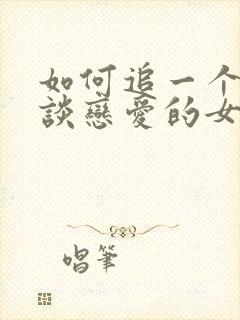 如何追一个
談戀愛的女
唱筆